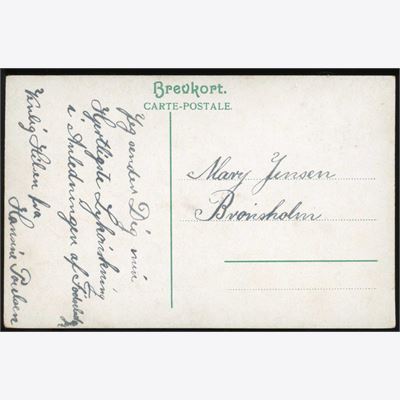 Brevkort.
CARTE-POSTALE.
Jeg sender Dig min
Hjertligste Lykønskning
i Anledningen af Födselsdag
Venlig Hilsen fra
Hanne Poulsen
Mary Jensen
Brönsholm